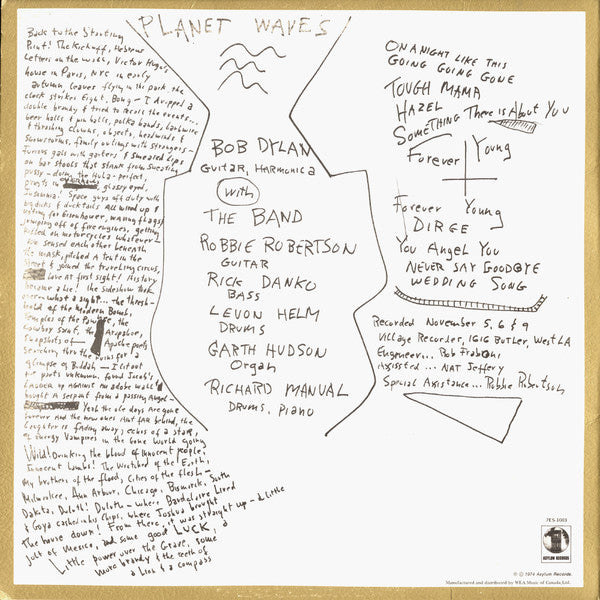 PLANET WAVES
Back to the Starting
Point! The Kickoff, Hebrew
Letters on the wall, Victor Hugo's
house in Paris, NYC in early
autumn, leaves flying in the park, the
clock strikes Eight, Bong — I dropped a
double brandy & tried to recall the events...
beer halls & pin balls, polka bands, barbwire
& thrashing clowns, objects, headwinds &
snowstorms, family outings with strangers —
Furious gals with garters & smeared Lips
on bar stools that stank from sweating
pussy — doing the Hula — perfect,
priests in overhauls, glossy eyed,
Insomnia! Space guys off duty with
big dicks & ducktails All wired up &
voting for Eisenhower, waving flags &
jumping off of fire engines, getting
killed on motorcycles whatever —
We sensed each other beneath
the mask, pitched a tent in the
street & joined the traveling circus,
love at first sight! History
became a Lie! the sideshow took
over — what a sight... the thresh-
hold of the Modern Bomb,
Temples of the Pawnee, the
Cowboy Saint, the Arapahoe,
Snapshots of Apache poets
Searching thru the ruins for a
glimpse of Buddah — I lit out
for parts unknown, found Jacob's
Ladder up against an adobe wall &
bought a serpent from a passing Angel —
Yeah the ole days are gone
forever And the new ones Aint far behind, the
Laughter is fading away, echos of a star,
of Energy Vampires in the Gone World going
Wild! Drinking the blood of innocent people,
Innocent Lambs! The Wretched of the Earth,
My brothers of the flood, Cities of the flesh —
Milwaukee, Ann Arbor, Chicago, Bismarck, South
Dakota, Duluth! Duluth — where Baudelaire Lived
& Goya cashed in his Chips, where Joshua brought
the house down! From there, it was straight up — a Little
jolt of Mexico, and some good LUCK, a
Little power over the Grave, some
more brandy & the teeth of
a Lion & a compass
BOB DYLAN
Guitar, Harmonica
with
THE BAND
ROBBIE ROBERTSON
GUITAR
RICK DANKO
BASS
LEVON HELM
DRUMS
GARTH HUDSON
Organ
RICHARD MANUAL
DRUMS, PIANO
ON A NIGHT LIKE THIS
GOING GOING GONE
TOUGH MAMA
HAZEL
SOMETHING There is About You
Forever Young
Forever Young
DIRGE
You Angel You
NEVER SAY GOODBYE
WEDDING SONG
Recorded November 5, 6 & 9
Village Recorder, 1616 Butler, West LA
Engeneer... Rob Fraboni
Assisted... NAT Jeffery
Special Assistance... Robbie Robertson
7ES 1003
ASYLUM RECORDS
℗ © 1974 Asylum Records.
Manufactured and distributed by WEA Music of Canada, Ltd.